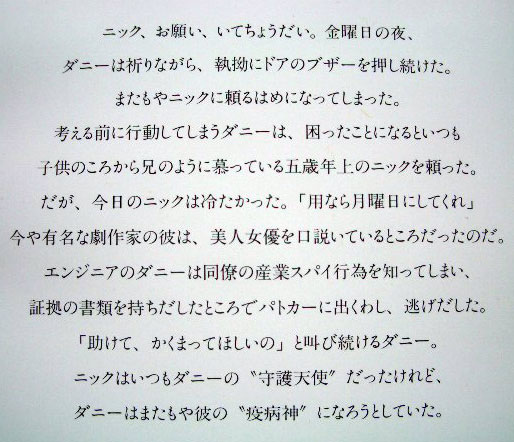 ニック、お願い、いてちょうだい。金曜日の夜、
ダニーは祈りながら、執拗にドアのブザーを押し続けた。
またもやニックに頼るはめになってしまった。
考える前に行動してしまうダニーは、困ったことになるといつも
子供のころから兄のように慕っている五歳年上のニックを頼った。
だが、今日のニックは冷たかった。「用なら月曜日にしてくれ」
今や有名な劇作家の彼は、美人女優を口説いているところだったのだ。
エンジニアのダニーは同僚の産業スパイ行為を知ってしまい、
証拠の書類を持ちだしたところでパトカーに出くわし、逃げだした。
「助けて、かくまってほしいの」と叫び続けるダニー。
ニックはいつもダニーの〝守護天使〟だったけれど、
ダニーはまたもや彼の〝疫病神〟になろうとしていた。